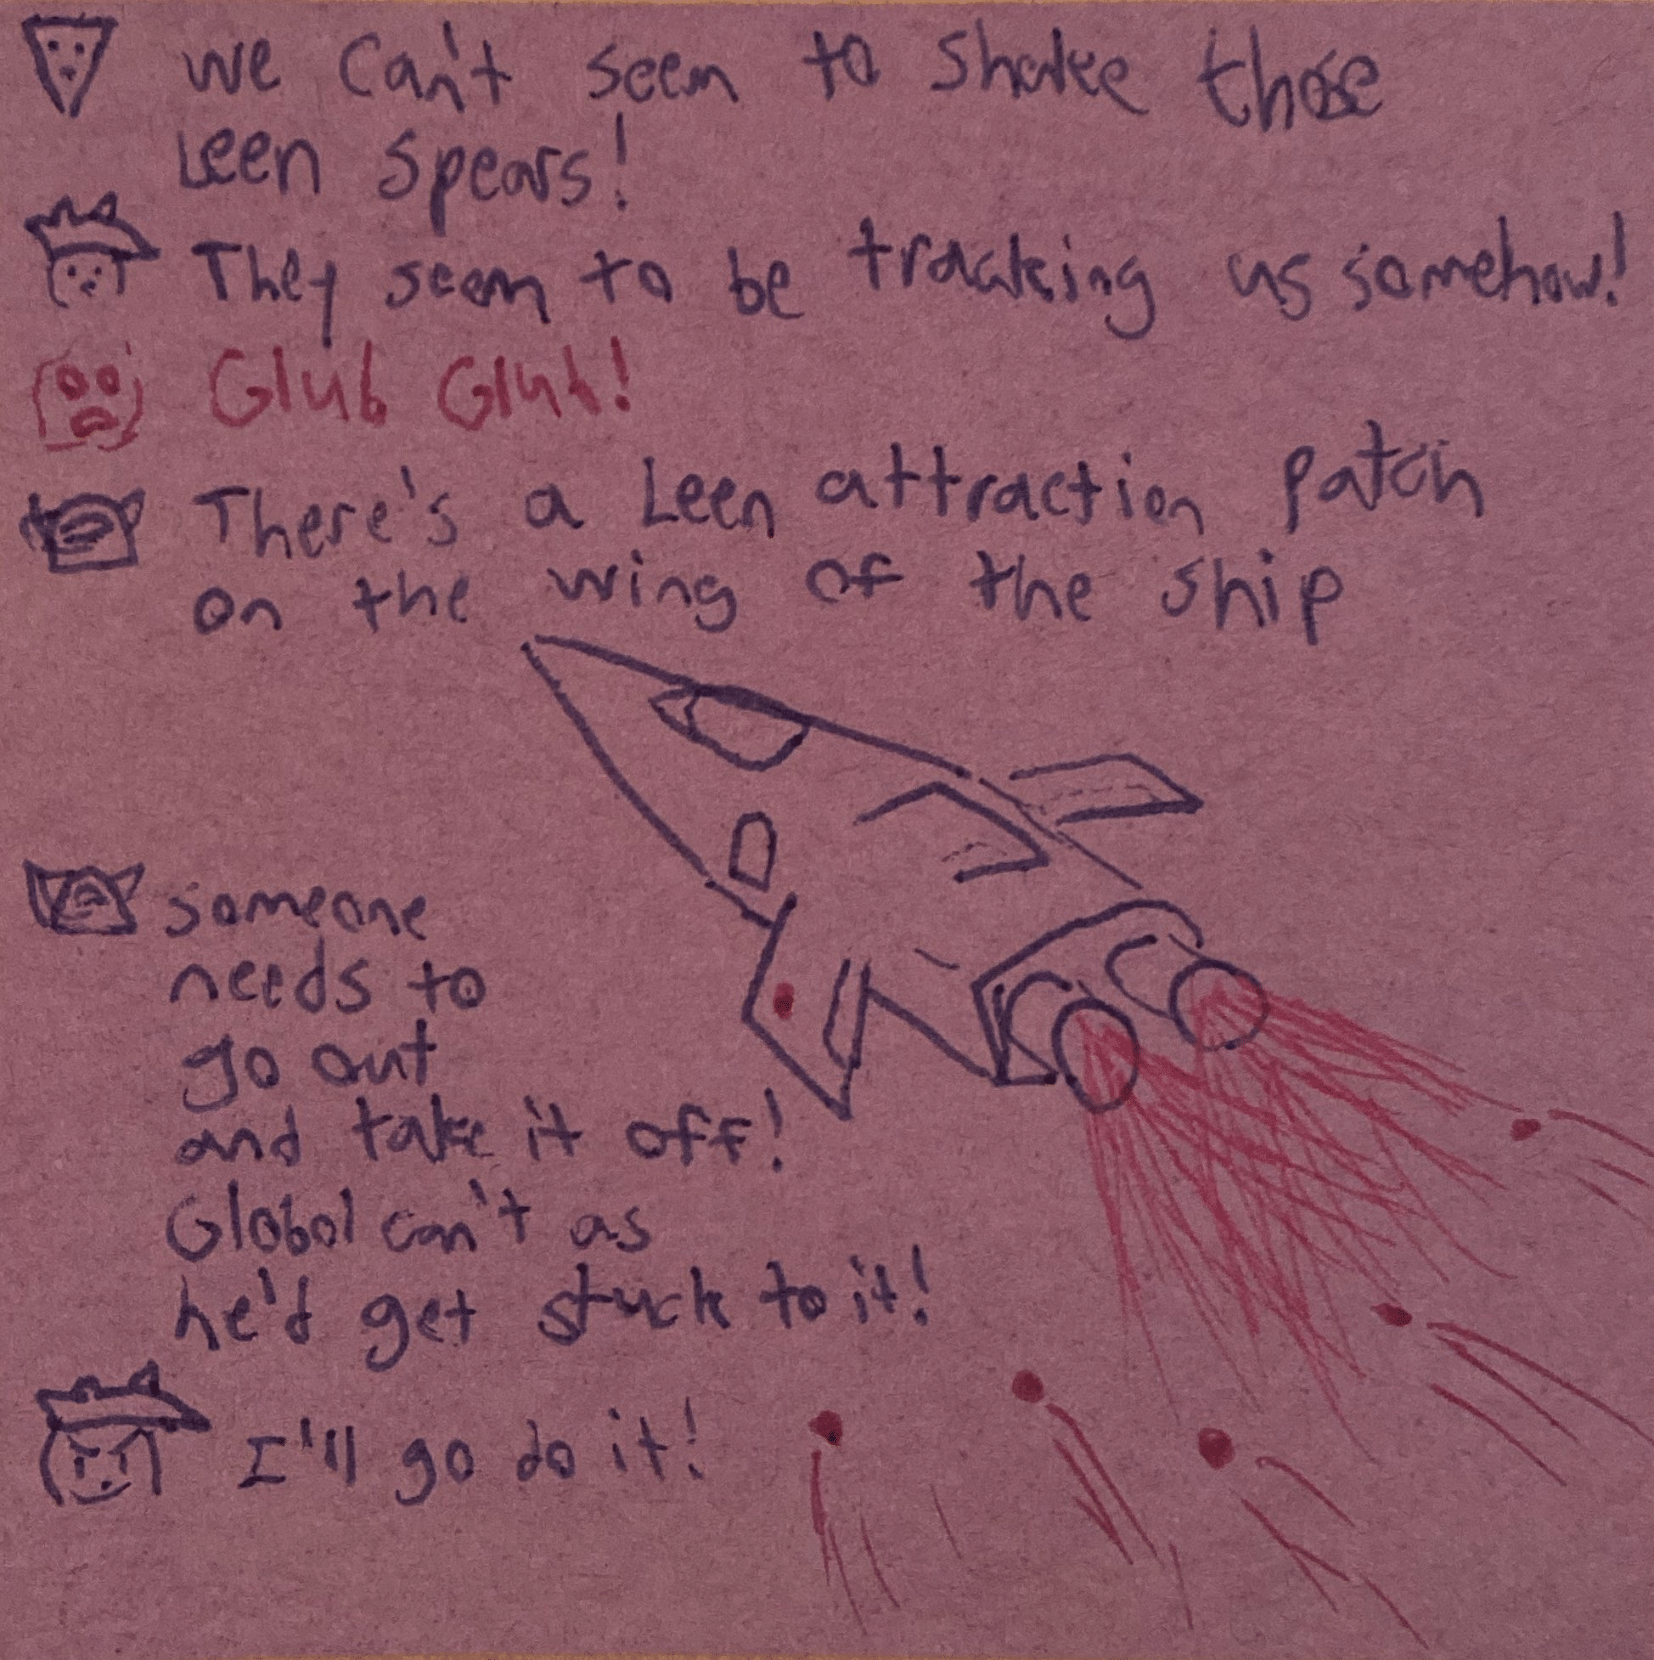 we can't seem to shake those
Leen spears!
They seem to be tracking us somehow!
Glub Glub!
There's a Leen attraction patch
on the wing of the ship
someone
needs to
go out
and take it off!
Globol can't as
he'd get stuck to it!
I'll go do it!